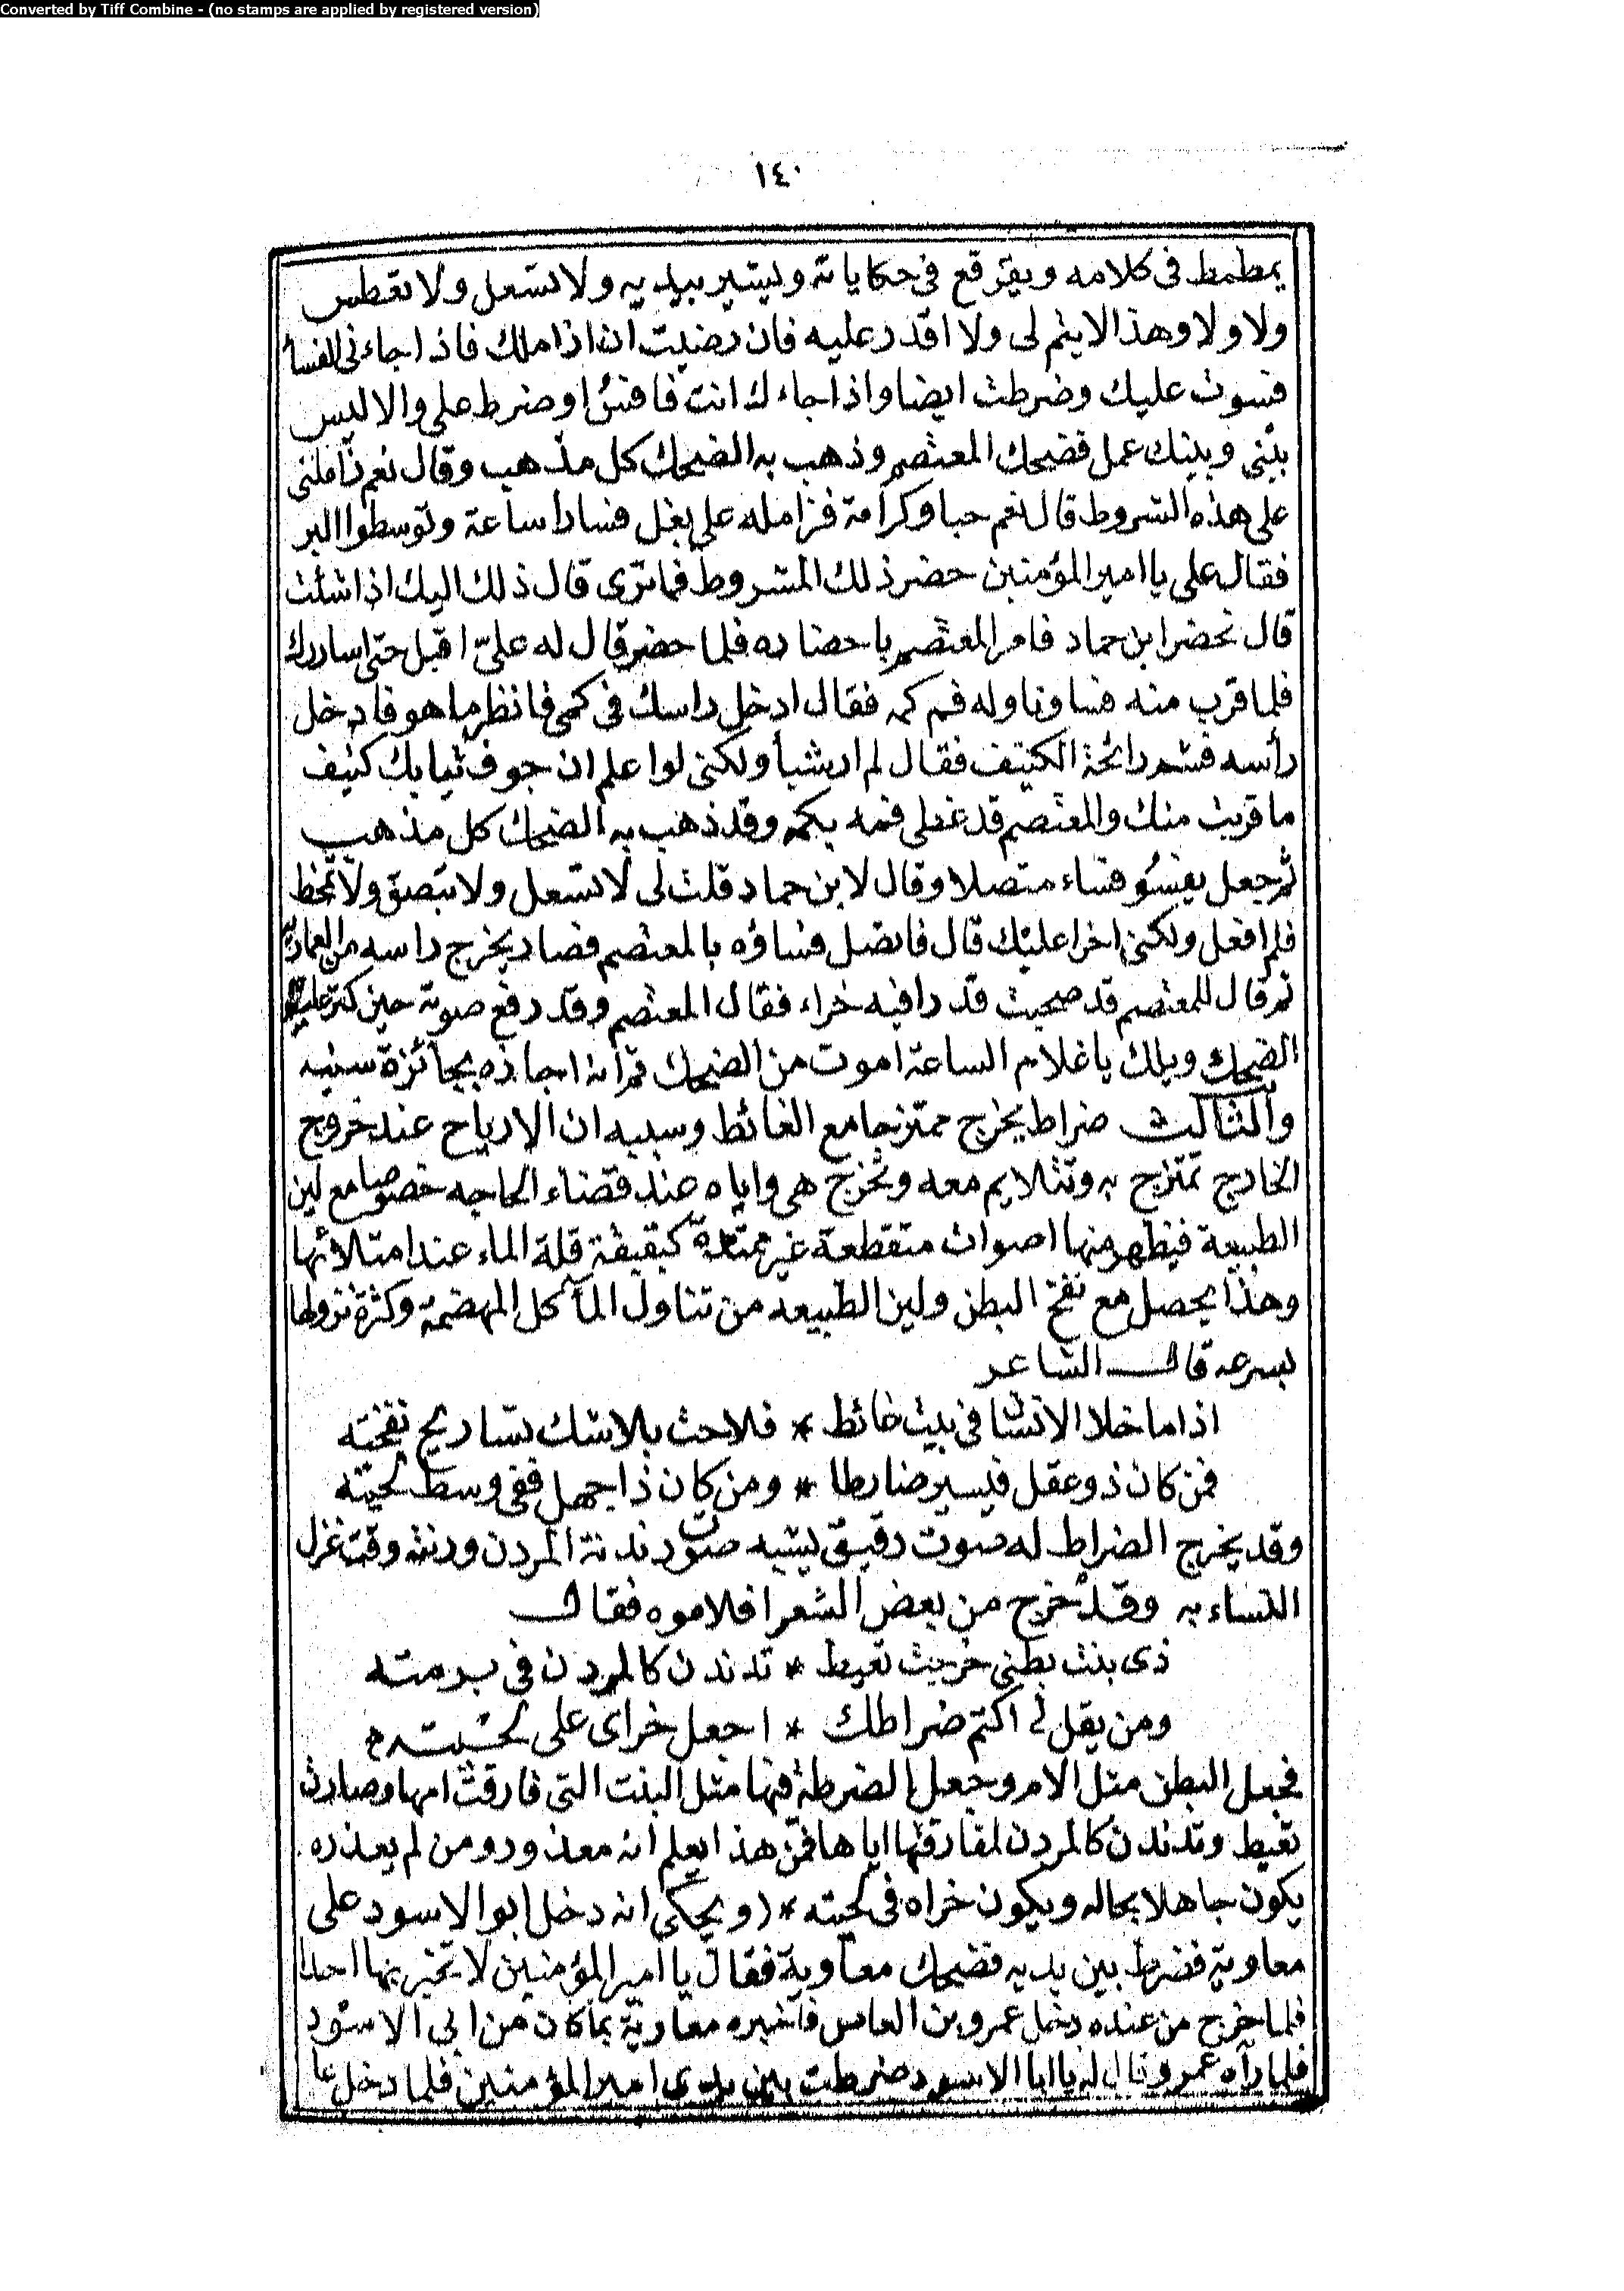 Converted by Tiff Combine - (no stamps are applied by registered version)
١٤٠
يمطمط فى كلامه ويفرقع فى حكاياته ويشير بيديه ولا تسعل ولا تعطس
ولا ولا ولا وهذا لا يتم لى ولا اقدر عليه فان رضيت ان ازاملك فاذا جاءنى الفسا
فسوت عليك وضرطت ايضا واذا جاءك انت فافسُ او ضرط على والا ليس
بينى وبينك عمل فضحك المعتصم وذهب به الضحك كل مذهب وقال نعم زاملنى
على هذه الشروط قال نعم حبا وكرامة فزامله على بغل فسارا ساعة وتوسطوا البر
فقال على يا امير المؤمنين حضر ذلك المشروط فما ترى قال ذلك اليك اذا شئت
قال تحضر ابن حماد فامر المعتصم باحضاره فلما حضر قال له علىّ اقبل حتى اساررك
فلما قرب منه فسا وناوله فم كمه فقال ادخل راسك فى كمى فانظر ما هو فادخل
رأسه فشم رائحة الكنيف فقال لم ار شيأ ولكنى لو اعلم ان جوف ثيابك كنيف
ما قربت منك والمعتصم قد غطى فمه بكمه وقد ذهب به الضحك كل مذهب
ثم جعل يفسُو فساء متصلا وقال لابن حماد قلت لى لا تسعل ولا تبصق ولا تمخط
فلم افعل ولكنى اخرا عليك قال فاتصل فساؤه بالمعتصم فصار يخرج راسه من العمارية
ثم قال للمعتصم قد صحيت قدرا فيه خراء فقال المعتصم وقد رفع صوته حين كثر عليه
الضحك ويلك يا غلام الساعة اموت من الضحك ثم انه اجازه بجائزة سنيه
والثالث ضراط يخرج ممتزجا مع الغائط وسببه ان الارياح عند خروج
الخارج تمتزج به وتتلايم معه وتخرج هى واياه عند قضاء الحاجه خصوصا مع لين
الطبيعة فيظهر منها اصوات متقطعة غير ممتدة كبقبقة قلة الماء عند امتلائها
وهذا يحصل مع نفخ البطن ولين الطبيعه من تناول المآكل المهضمة وكثرة نزولها
بسرعه قال الشاعر
اذا ما خلا الانسان فى بيت غائط * فلاحت بلا شك تساريح نفخته
فمن كان ذو عقل فيسير ضارطا * ومن كان ذا جهل ففى وسط لحيته
وقد يخرج الضراط له صوت رقيق يشبه صوت دندنة المردن ورنته وقت غزل
النساء به وقد خرج من بعض الشعرا فلاموه فقال
ذى بنت بطنى خرجت تعيط * تدندن كالمردن فى برمته
ومن يقل لى اكتم ضراطك * اجعل خراى على لحيته
فجعل البطن مثل الام وجعل الضرطة فيها مثل البنت التى فارقت امها وصارت
تعيط وتدندن كالمردن لفارقتها اياها فمن هذا يعلم انه معذور ومن لم يعذره
يكون جاهلا بحاله ويكون خراه فى لحيته * (ويحكى انه دخل ابو الاسود على
معاوية فضرط بين يديه فضحك معاوية فقال يا امير المؤمنين لا تخبر بها احدا
فلما خرج من عنده دخل عمرو بن العاص فاخبره معاوية بما كان من ابى الاسود
فلما رآه عمرو قال له يا ابا الاسود ضرطت بين يدى امير المؤمنين فلما دخل على